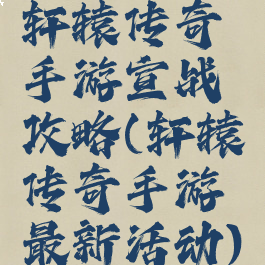 轩辕传奇
手游宣战
攻略(轩辕
传奇手游
最新活动)